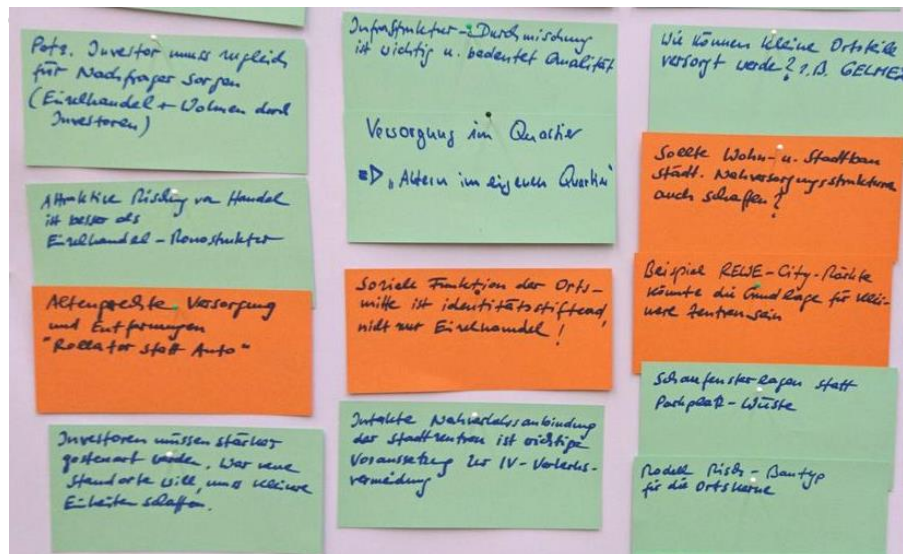 Pot. Investor muss zugleich
für Nachfrager sorgen
(Einzelhandel + Wohnen durch
Investoren)
Attraktive Mischung von Handel
ist besser als
Einzelhandel-Monostruktur
Altengerechte Versorgung
und Entfernungen
"Rollator statt Auto"
Investoren müssen stärker
gesteuert werden. Wer neue
Standorte will, muss kleinere
Einheiten schaffen.
Infrastruktur-Durchmischung
ist wichtig u. bedeutet Qualität
Versorgung im Quartier
=> „Altern im eigenen Quartier"
Soziale Funktion der Orts-
mitte ist identitätsstiftend,
nicht nur Einzelhandel!
Intakte Nahverkehrsanbindung
der Stadtzentren ist wichtige
Voraussetzung zur IV-Verkehrs-
vermeidung
Wie können kleine Ortsteile
versorgt werde? z.B. GELMER
Sollte Wohn- u. Stadtbau
städt. Nahversorgungsstrukturen
auch schaffen?
Beispiel REWE-City-Märkte
könnte die Grundlage für klei-
nere Zentren sein
Schaufensterlagen statt
Parkplatz-Wüste
Modell Misch-Bautyp
für die Ortskerne